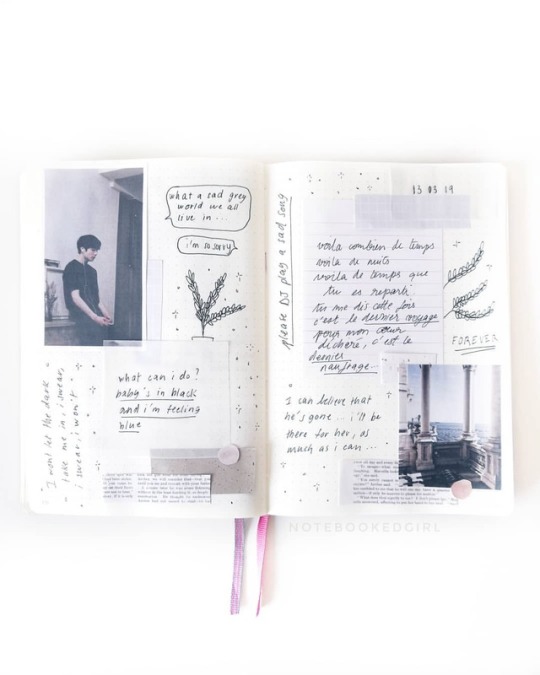 what a sad grey
world we all
live in ...
i'm so sorry
I wont let the dark
take me in, i swear,
i swear, i won't
what can i do?
baby's in black
and i'm feeling
blue
please DJ play a sad song
13 03 19
voila combien de temps
voila de nuits
voila de temps que
tu es reparti
tu me dis cette fois
c'est le dernier voyage
pour mon cœur
déchiré, c'est le
dernier
naufrage...
FOREVER
I can believe that
he's gone... i'll be
there for her, as
much as i can...
NOTEBOOKEDGIRL